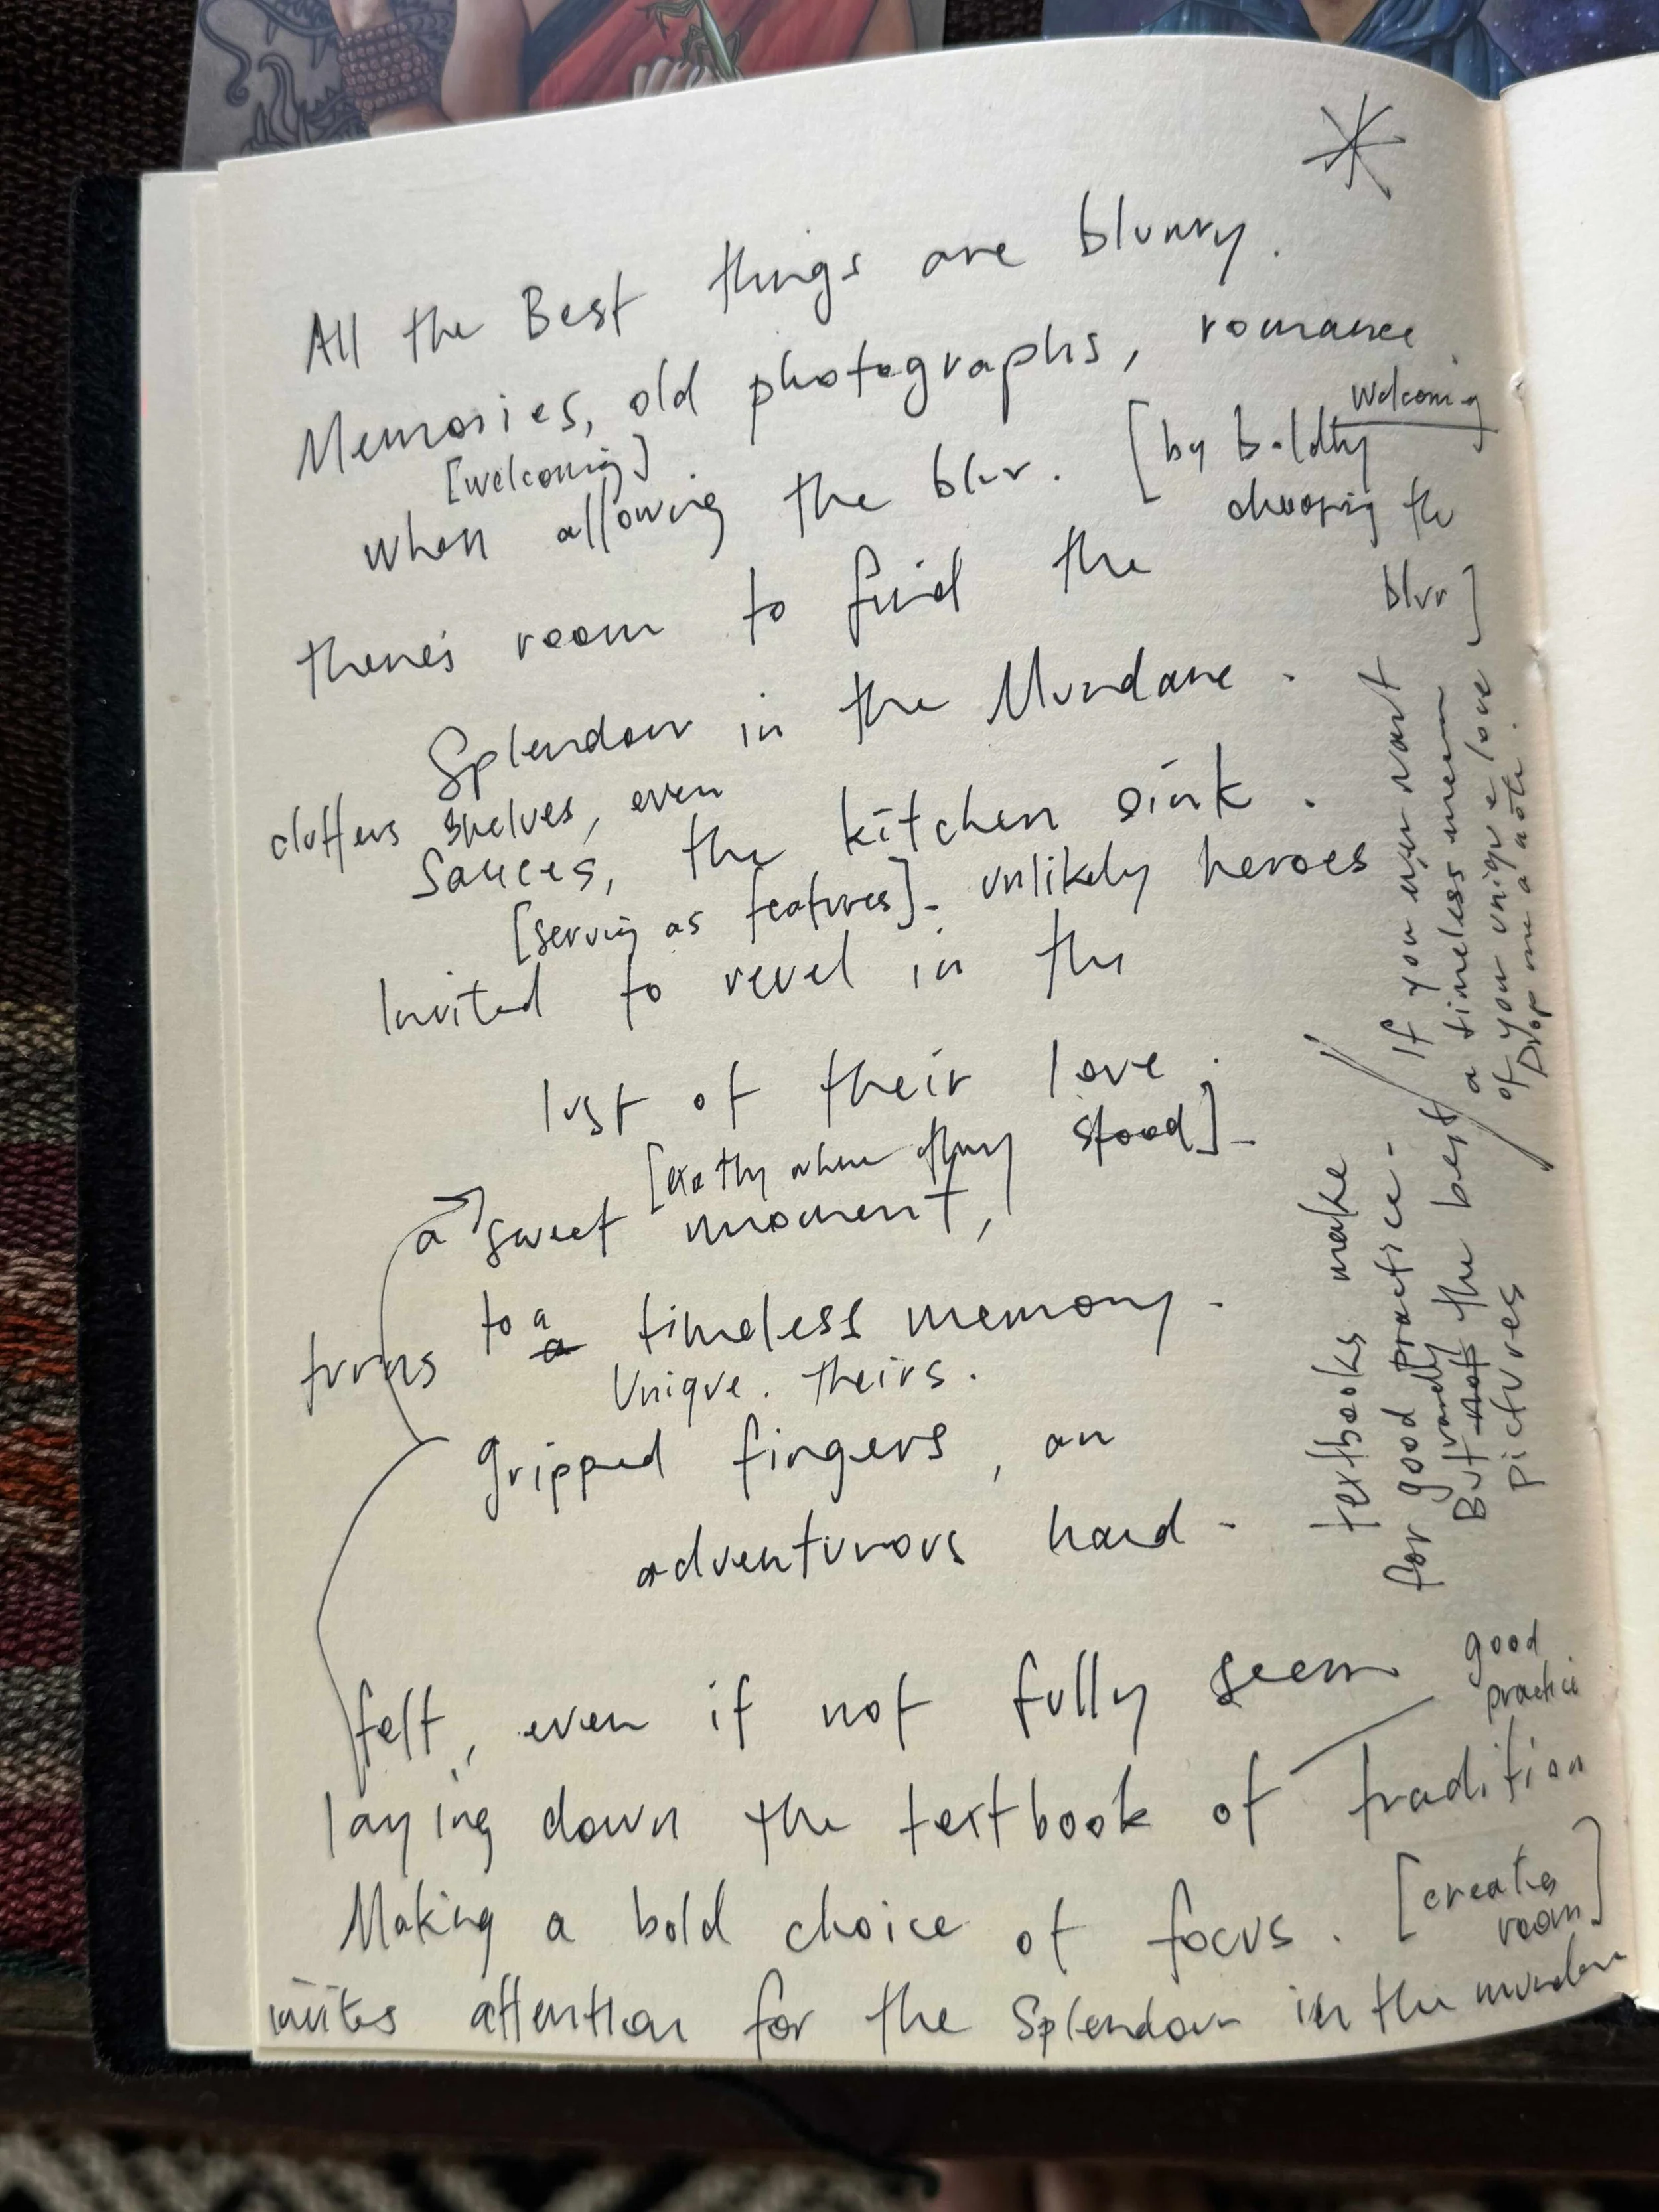 All the Best things are blurry.
Memories, old photographs, romance.
[welcoming]
when allowing the blur. [by boldly
welcoming
choosing the
blur]
there's room to find the
Splendour in the Mundane.
clutters shelves, even
Sauces, the kitchen sink.
[serving as features]. unlikely heroes
Invited to revel in the
lust of their love.
[exactly where they stood].
a sweet moment,
turns to a a timeless memory.
Unique. theirs.
Gripped fingers, an
adventurous hand.
felt, even if not fully seen
good
practice
laying down the textbook of tradition
Making a bold choice of focus. [creates
room]
invites attention for the Splendour in the mundane
textbooks make
for good practice.
But not the best
pictures
If you ever want
a timeless mem
of your unique love
Drop me a note.